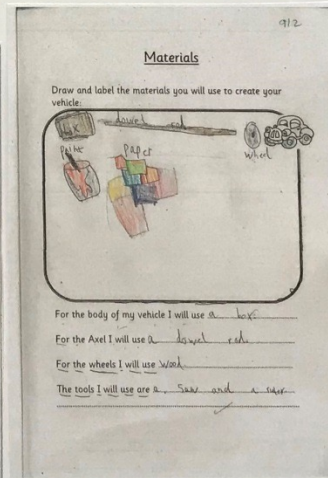 9/2
Materials
Draw and label the materials you will use to create your
vehicle:
dowel rod
paint
paper
wheel
For the body of my vehicle I will use a box.
For the Axel I will use a dowel rod
For the wheels I will use wood
The tools I will use are a. Saw and a